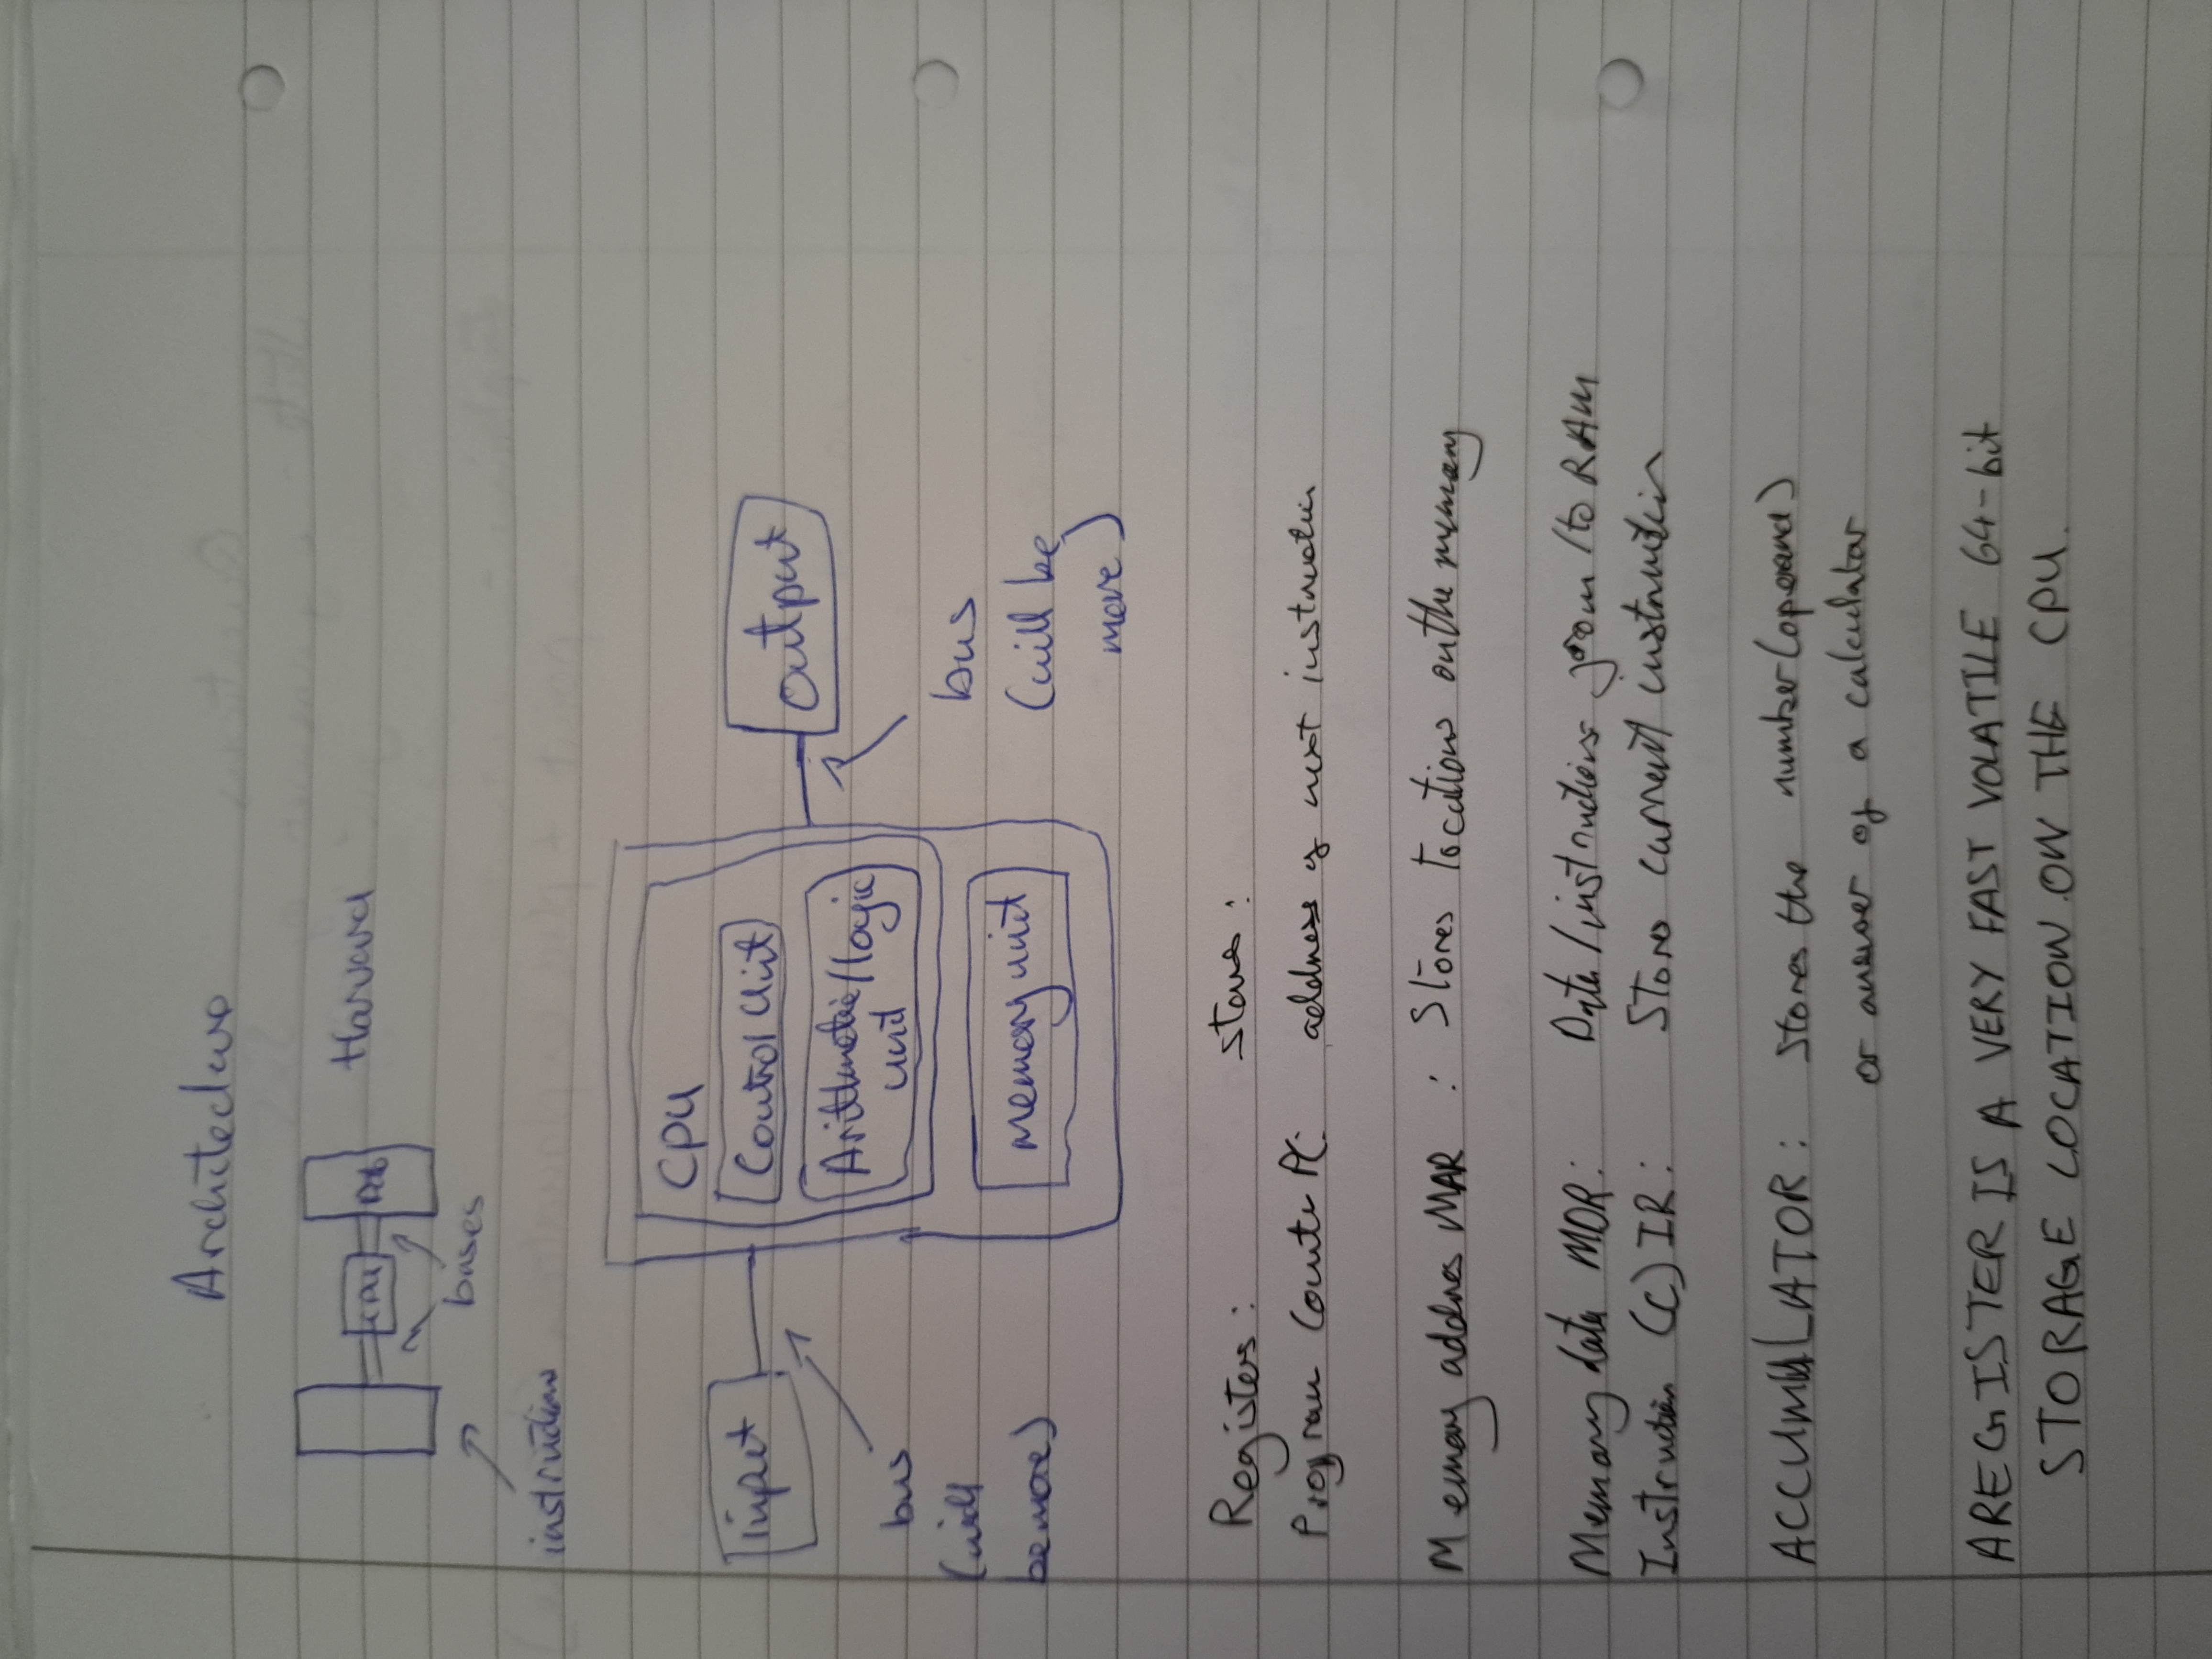 Architecture
Harvard
CPU
buses
instructions
CPU
input
Control Unit
output
Arithmetic/logic
unit
bus
(will
be more)
bus
(will be
more)
memory unit
Registers: stores:
Program Counter PC: address of next instruction
Memory address MAR : Stores locations on the memory
Memory data MDR: Data/instructions from/to RAM
Instruction (C)IR: Stores current instruction
ACCUMULATOR: Stores the number (operand)
or answer of a calculator
A REGISTER IS A VERY FAST VOLATILE 64-bit
STORAGE LOCATION ON THE CPU.